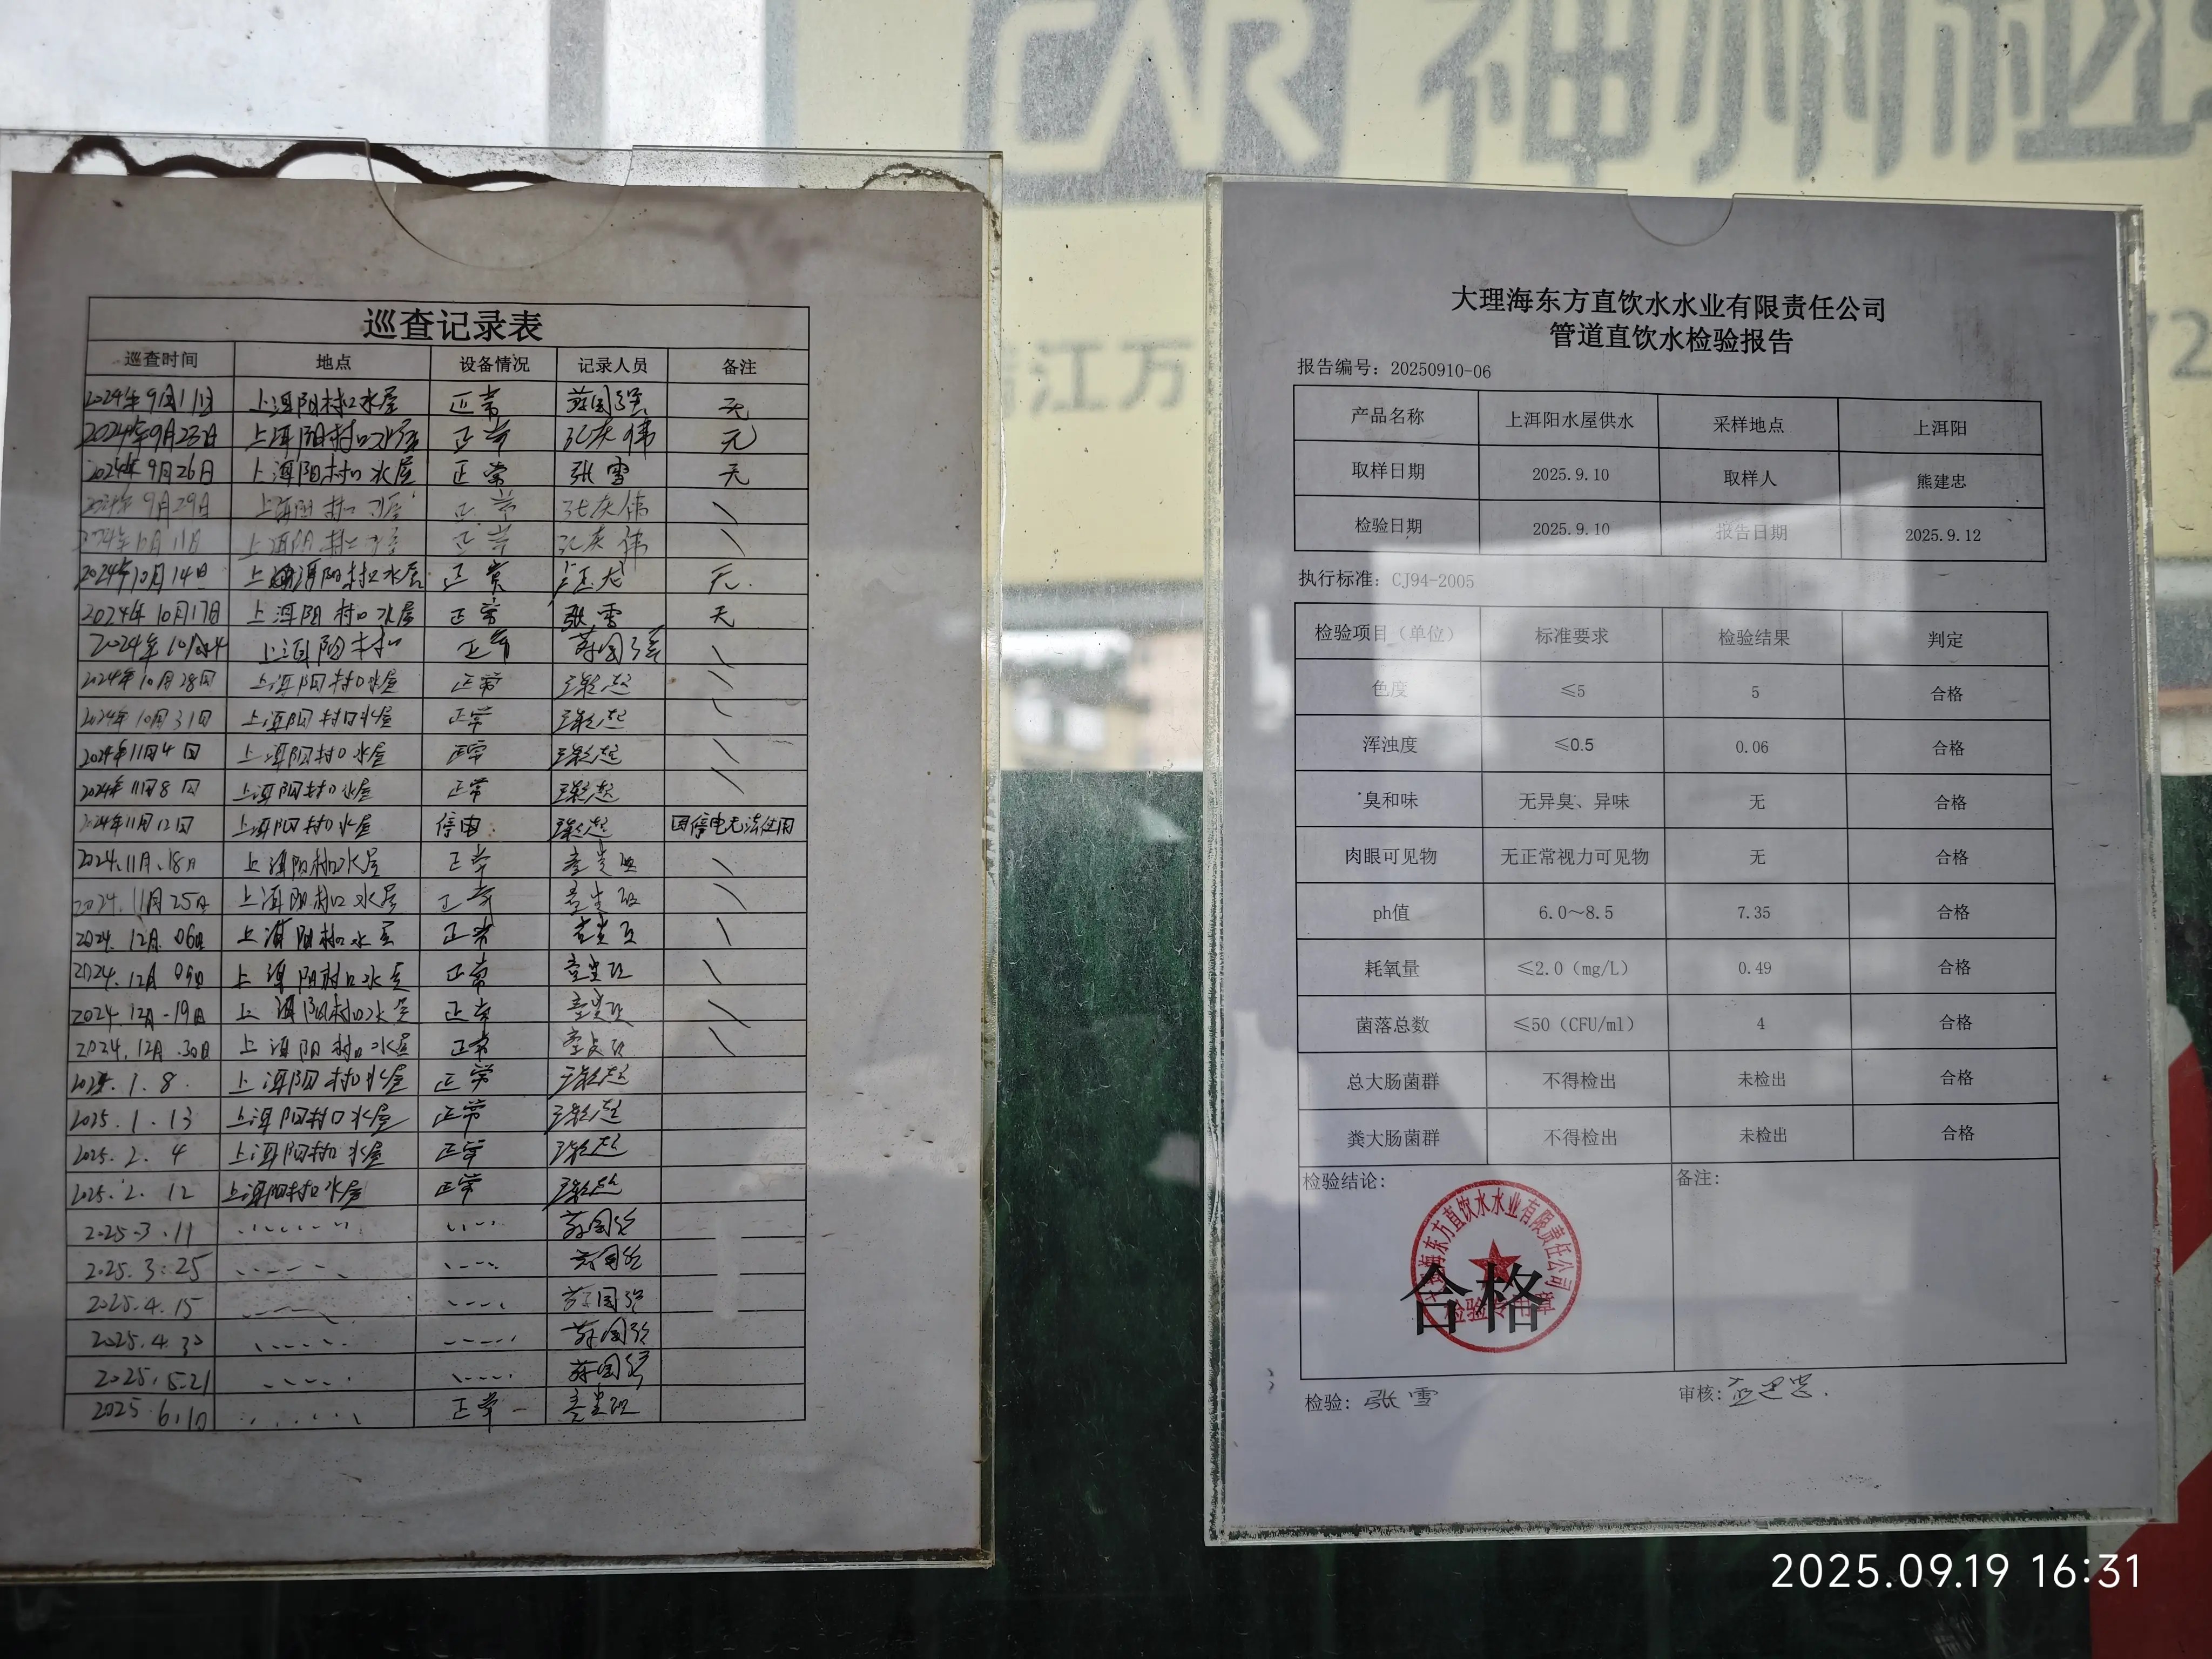 CAR 神州租
巡查记录表
巡查时间 地点 设备情况 记录人员 备注
2024年9月11日 上洱阳村口水屋 正常 苏国强 无
2024年9月23日 上洱阳村口水屋 正常 张庆伟 无
2024年9月26日 上洱阳村口水屋 正常 张雪 无
2024年9月29日 上洱阳村口水屋 正常 张庆伟 \
2024年10月11日 上洱阳村口水屋 正常 张庆伟 \
2024年10月14日 上洱阳村口水屋 正常 无.
2024年10月17日 上洱阳村口水屋 正常 张雪 无
2024年10月24 上洱阳村口 正常 苏国强 \
2024年10月28日 上洱阳村口水屋 正常 \
2024年10月31日 上洱阳村口水屋 正常 \
2024年11月4日 上洱阳村口水屋 正常 \
2024年11月8日 上洱阳村口水屋 正常 \
2024年11月12日 上洱阳村口水屋 停电 因停电无法使用
2024.11月.18日 上洱阳村口水屋 正常 \
2024.11月25日 上洱阳村口水屋 正常 \
2024.12月.06日 上洱阳村口水屋 正常 \
2024.12月09日 上洱阳村口水屋 正常 \
2024.12月-19日 上洱阳村口水屋 正常 \
2024.12月.30日 上洱阳村口水屋 正常 \
2025.1.8. 上洱阳村口水屋 正常
2025.1.13 上洱阳村口水屋 正常
2025.2.4 上洱阳村口水屋 正常
2025.2.12 上洱阳村口水屋 正常
2025.3.11 苏国强
2025.3.25 苏国强
2025.4.15 苏国强
2025.4.30 苏国强
2025.5.21 苏国强
2025.6.10 正常
大理海东方直饮水水业有限责任公司
管道直饮水检验报告
报告编号：20250910-06
产品名称 上洱阳水屋供水 采样地点 上洱阳
取样日期 2025.9.10 取样人 熊建忠
检验日期 2025.9.10 报告日期 2025.9.12
执行标准：CJ94-2005
检验项目（单位） 标准要求 检验结果 判定
色度 ≤5 5 合格
浑浊度 ≤0.5 0.06 合格
臭和味 无异臭、异味 无 合格
肉眼可见物 无正常视力可见物 无 合格
ph值 6.0～8.5 7.35 合格
耗氧量 ≤2.0（mg/L） 0.49 合格
菌落总数 ≤50（CFU/ml） 4 合格
总大肠菌群 不得检出 未检出 合格
粪大肠菌群 不得检出 未检出 合格
检验结论： 备注：
大理海东方直饮水水业有限责任公司
合格
检验专用章
检验：张雪 审核：
2025.09.19 16:31